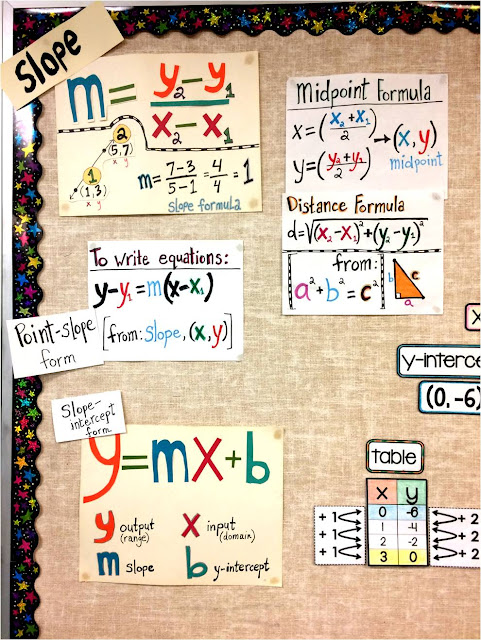 Slope
m = y₂-y₁
x₂-x₁
2
(5,7)
x y
1
(1,3)
x y
m= 7-3 = 4 = 1
5-1 4
slope formula
Midpoint Formula
x=(x₂+x₁/2) → (x,y)
y=(y₂+y₁/2) midpoint
Distance Formula
d=√(x₂-x₁)²+(y₂-y₁)²
from:
a²+b²=c²
b c
a
To write equations:
y-y₁=m(x-x₁)
[from: slope, (x,y)]
Point-slope
form
Slope-
intercept
form
y=mx+b
y output x input
(range) (domain)
m slope b y-intercept
(0,-6)
table
x y
0 -6
1 -4
2 -2
3 0
+1 +2
+1 +2
+1 +2